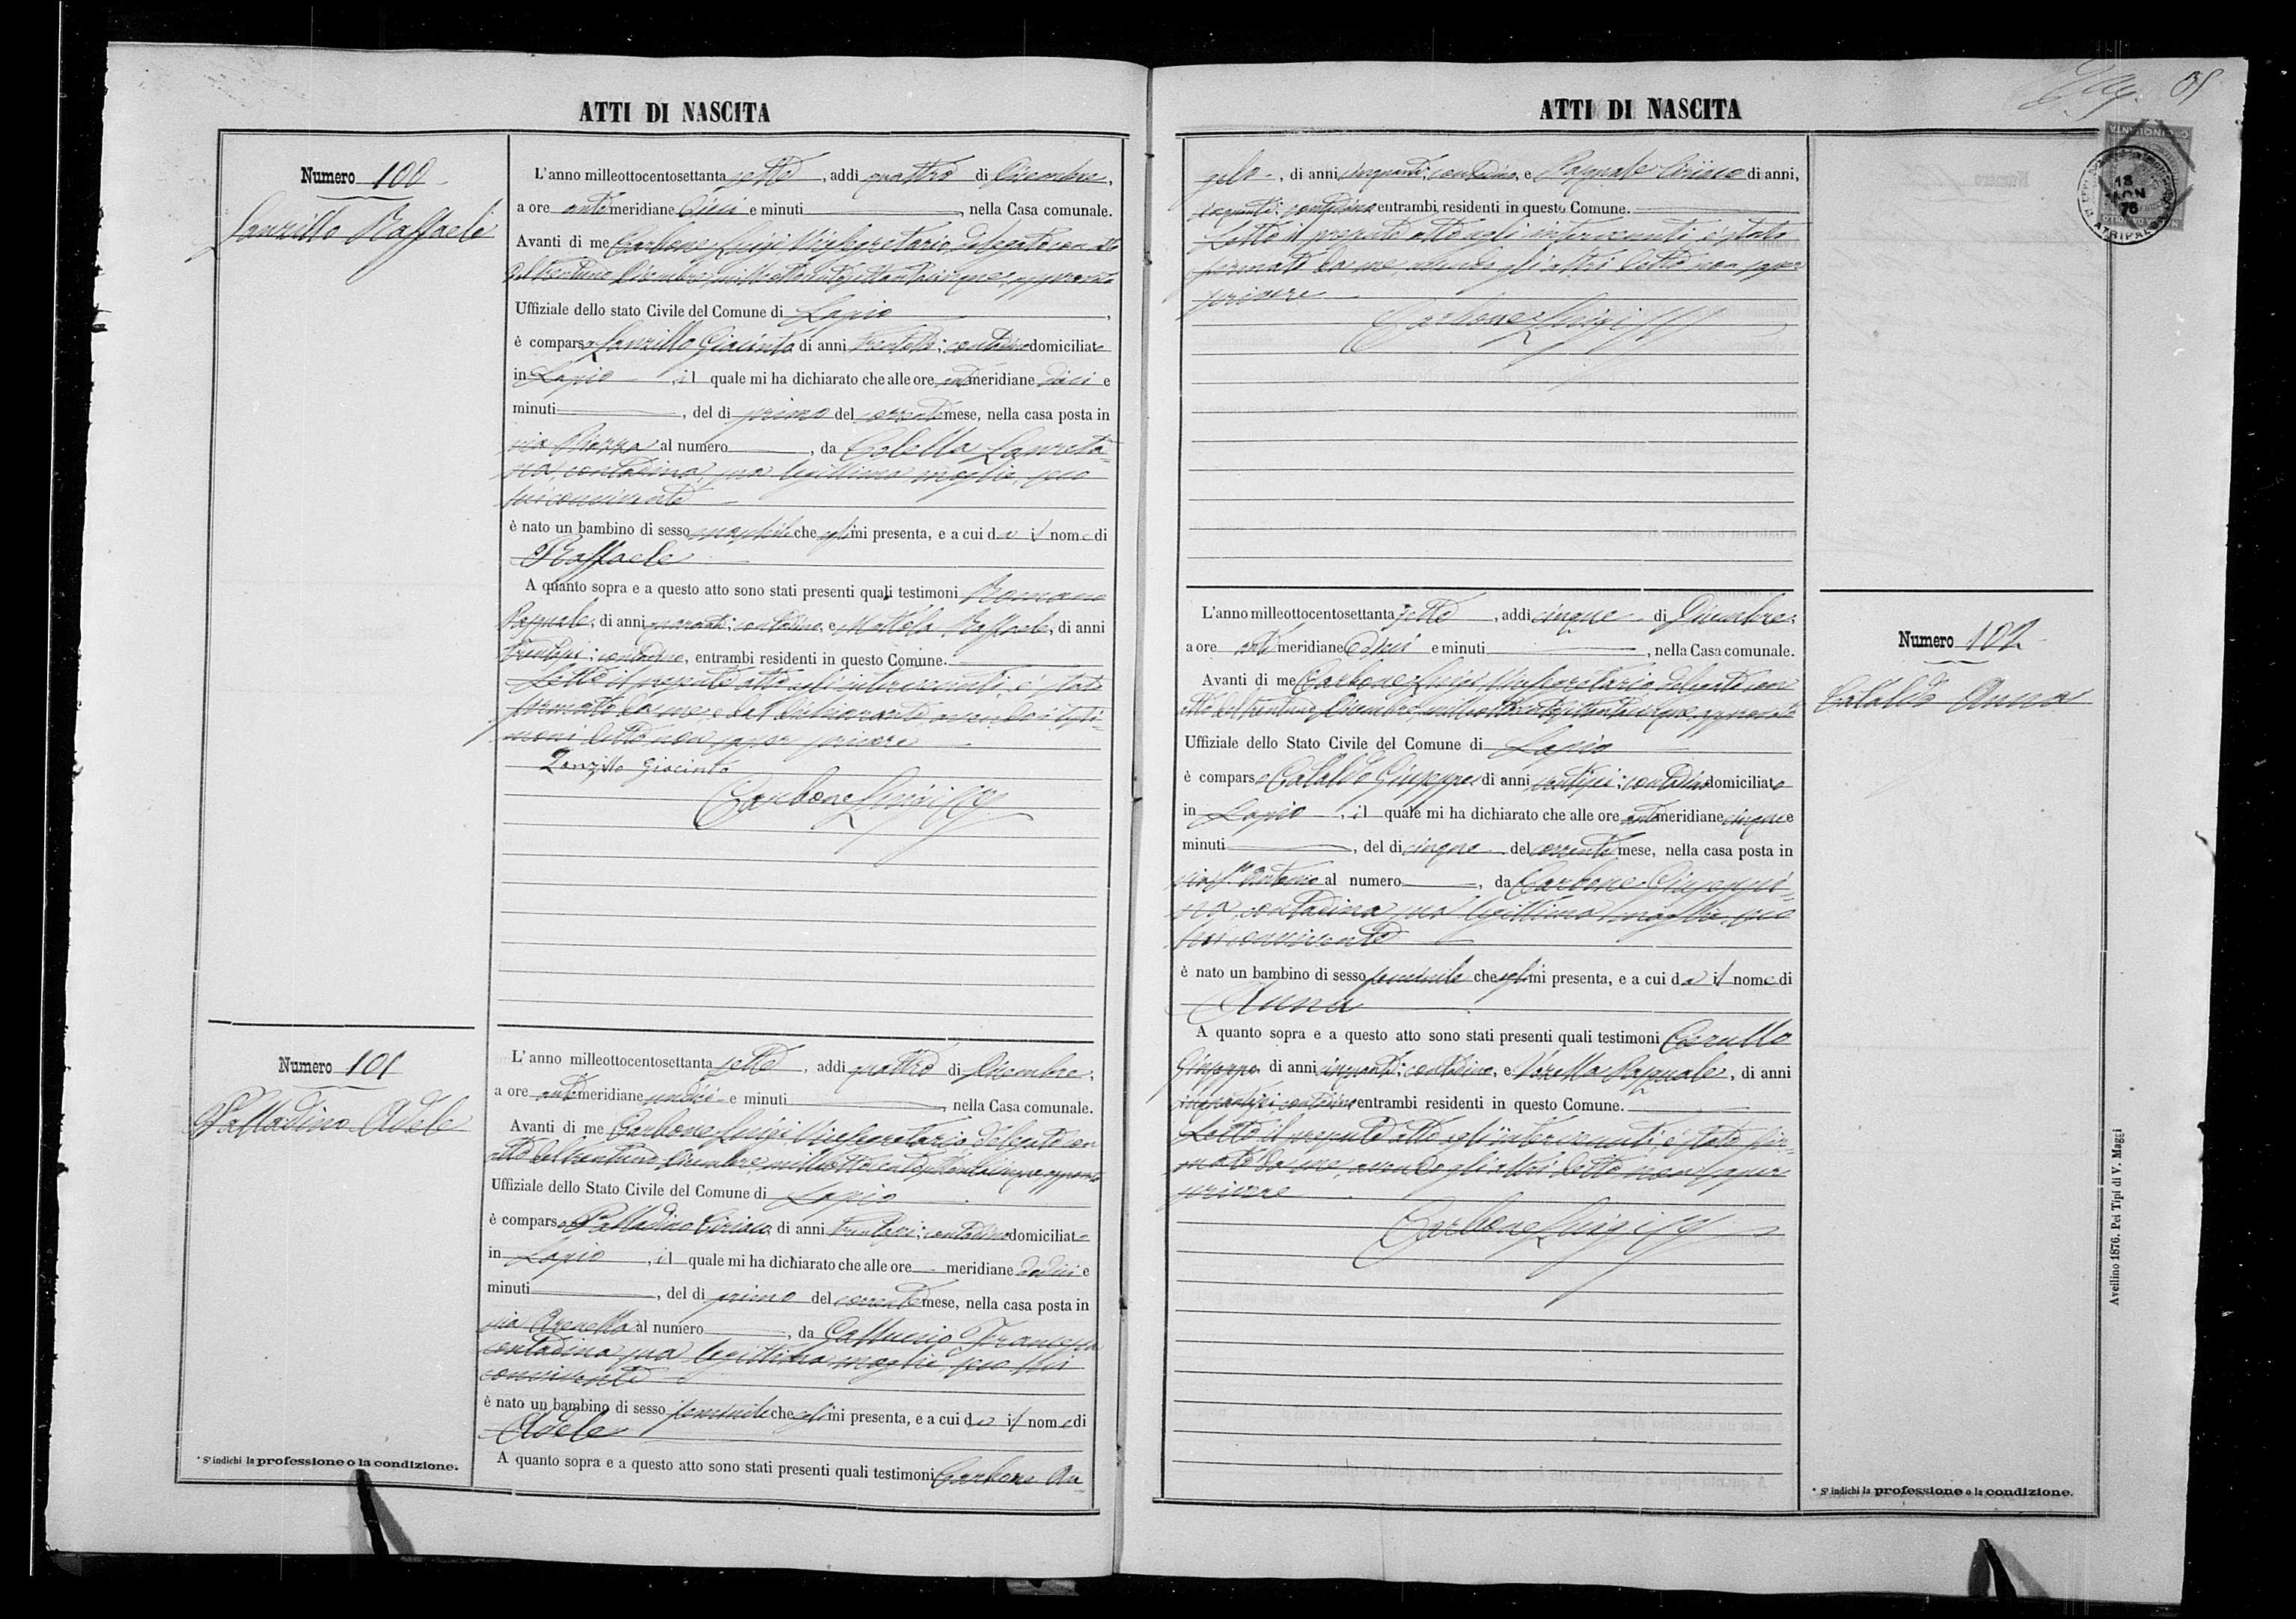 ATTI DI NASCITA
Numero 100
Lanzillo Raffaele
L'anno milleottocentosettanta sette, addi quattro di Dicembre,
a ore antimeridiane dieci e minuti, nella Casa comunale.
Avanti di me Carbone Luigi Vicesegretario delegato con atto
del trentuno Dicembre milleottocentosettantacinque, approvato
Uffiziale dello stato Civile del Comune di Lapio,
è comparso Lanzillo Giacinto di anni trentotto; contadino domiciliato
in Lapio, il quale mi ha dichiarato che alle ore antimeridiane dieci e
minuti, del di primo del corrente mese, nella casa posta in
via Piazza al numero, da Colella Laureta=
na, contadina, sua legittima moglie, seco
lui convivente
è nato un bambino di sesso maschile che egli mi presenta, e a cui da il nome di
Raffaele
A quanto sopra e a questo atto sono stati presenti quali testimoni Romano
Pasquale, di anni quaranta; contadino, e Mottola Raffaele, di anni
trentasei; contadino, entrambi residenti in questo Comune.
Letto il presente atto agli intervenuti, è stato
firmato da me e dal dichiarante avendo i testi=
moni detto non saper scrivere
Lanzillo Giacinto
Carbone Luigi
Numero 101
Palladino Adele
L'anno milleottocentosettanta sette, addi quattro di Dicembre,
a ore antimeridiane undici e minuti, nella Casa comunale.
Avanti di me Carbone Luigi Vicesegretario delegato con
atto del trentuno Dicembre milleottocentosettantacinque approvato
Uffiziale dello Stato Civile del Comune di Lapio.
è comparso Palladino Ciriaco di anni trentasei; contadino domiciliato
in Lapio, il quale mi ha dichiarato che alle ore meridiane dodici e
minuti, del di primo del corrente mese, nella casa posta in
via Arenella al numero, da Francesca
contadina sua legittima moglie, seco lui
convivente
è nato un bambino di sesso femminile che egli mi presenta, e a cui da il nome di
Adele
A quanto sopra e a questo atto sono stati presenti quali testimoni Carbone An=
* S'indichi la professione o la condizione.
ATTI DI NASCITA
gelo, di anni cinquanta; contadino, e Pasquale Ciriaco di anni,
cinquanta; contadino entrambi residenti in questo Comune.
Letto il presente atto agli intervenuti è stato
firmato da me avendo gli altri detto non saper
scrivere
Carbone Luigi
Numero 102
Cataldo Anna
L'anno milleottocentosettanta sette, addi cinque di Dicembre,
a ore antimeridiane dieci e minuti, nella Casa comunale.
Avanti di me Carbone Luigi Vicesegretario delegato con
atto del trentuno Dicembre milleottocentosettantacinque, approvato
Uffiziale dello Stato Civile del Comune di Lapio
è comparso Cataldo Giuseppe di anni ventisei; contadino domiciliato
in Lapio, il quale mi ha dichiarato che alle ore antimeridiane cinque e
minuti, del di cinque del corrente mese, nella casa posta in
via S. Antonio al numero, da Carbone Giuseppi=
na, contadina, sua legittima moglie, seco
lui convivente
è nato un bambino di sesso femminile che egli mi presenta, e a cui da il nome di
Anna
A quanto sopra e a questo atto sono stati presenti quali testimoni Carullo
Giuseppe di anni cinquanta; contadino, e Pasquale, di anni
contadino entrambi residenti in questo Comune.
Letto il presente atto agli intervenuti, è stato fir=
mato da me, avendo gli altri detto non saper
scrivere
Carbone Luigi
* S'indichi la professione o la condizione.
Avellino 1876. Pei Tipi di V. Maggi
18
78
ATRIPALDA